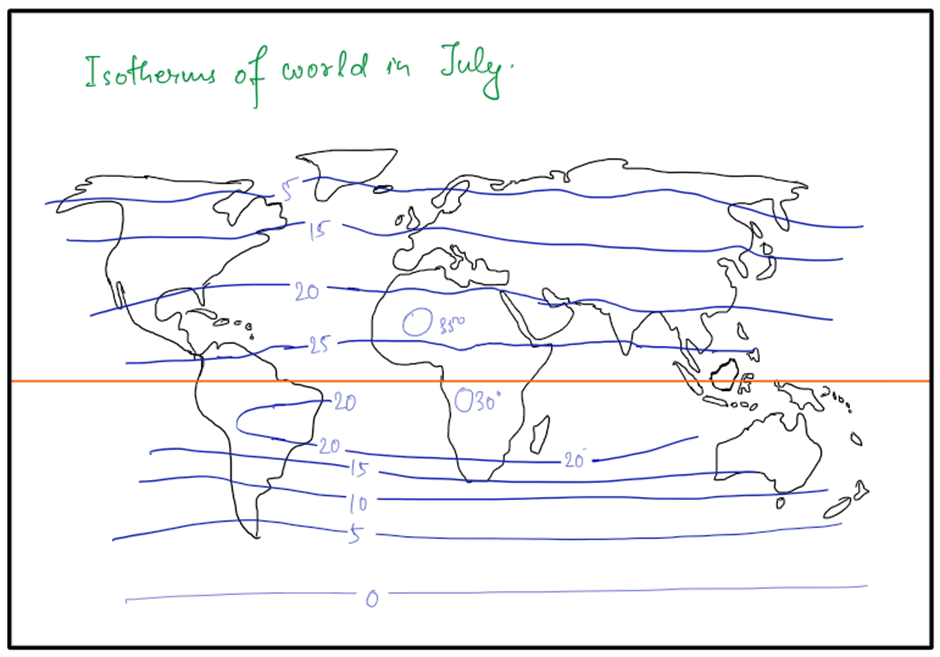 Isotherms of world in July.
5
15
20
25
35°
30°
20
20
20°
15
10
5
0